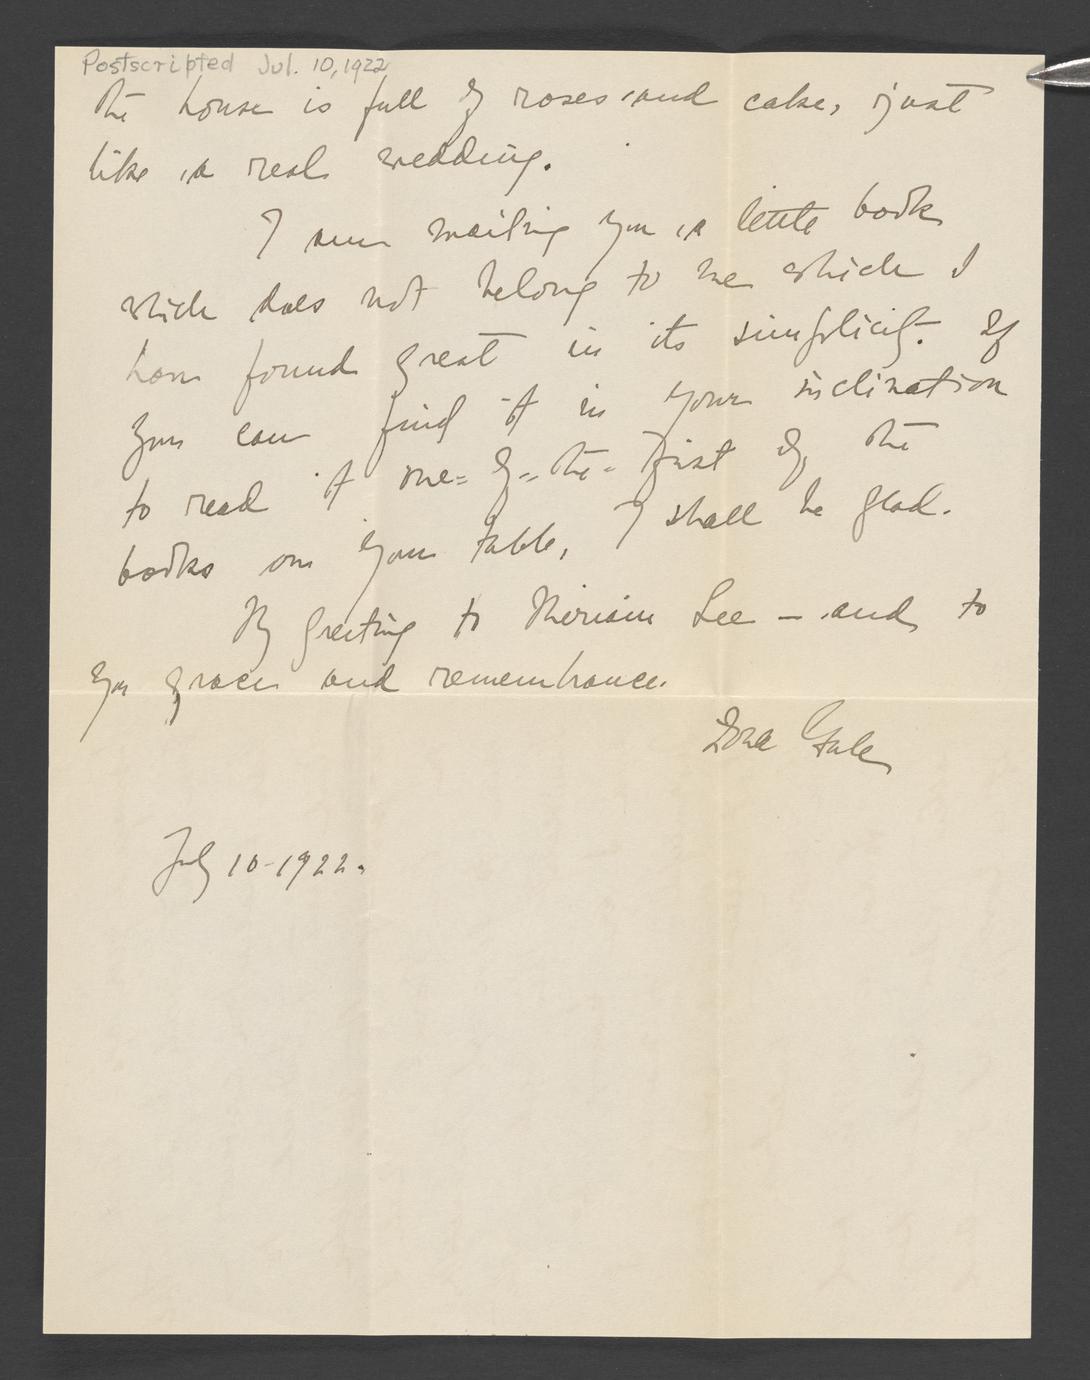 Postscripted Jul. 10, 1922
The house is full of roses and cake, just
like a real wedding.
I am mailing you a little book
which does not belong to me which I
have found great in its simplicity. If
you can find it in your inclination
to read it one-of-the-first of the
books on your table, I shall be glad.
My greeting to Miriam Lee — and to
you grace and remembrance.
Zona Gale
July 10-1922.